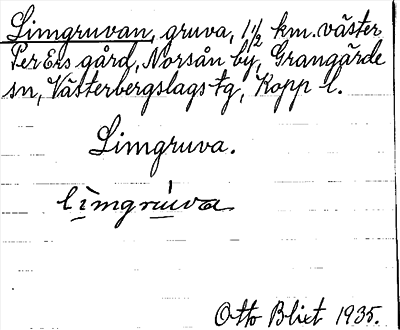 Limgruvan, gruva, 1 1/2 km. väster
Per Ers gård, Norsån by, Grangärde
sn, Västerbergslags tg, Kopp l.
Limgruva.
limgrúva
Otto Blixt 1935.